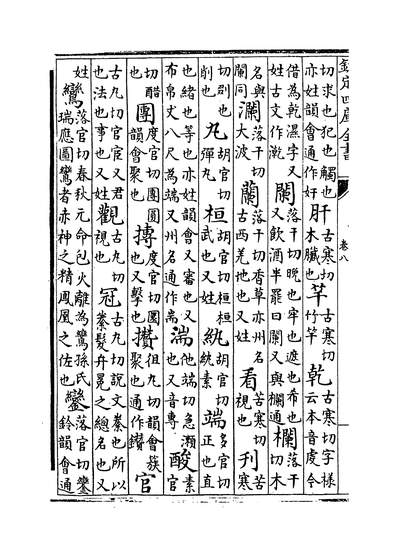 欽定四庫全書 卷八
切求也犯也觸也亦姓韻會通作奸 肝 古寒切木臟也 竿 古寒切竹竿 乾 古寒切字樣云本音虔今
借為乾濕字又姓古文作漧 闌 落干切晚也牢也遮也希也又飲酒半罷曰闌又與欄通 欄 落干切木
名與闌同 瀾 落干切大波 蘭 落干切香草亦州名古西羌地也又姓 看 苦寒切視也 刊 苦寒
切剟也削也 丸 胡官切彈丸 桓 胡官切桓桓武也又姓 紈 胡官切紈素 端 多官切正也直
也緒也等也亦姓韻會又審也又布帛丈八尺為端又州名通作耑 湍 他端切急瀨也又音專 酸 素官
切醋 團 度官切團圓韻會聚也 摶 度官切圜也又擊也 攢 徂丸切韻會簇聚也通作鑽 官
古丸切官宦又君也法也事也又姓 觀 古丸切視也 冠 古丸切說文絭也所以絭髮弁冕之總名也又
姓 鸞 落官切春秋元命包火離為鸞孫氏瑞應圖鸞者赤神之精鳳凰之佐也 鑾 落官切鑾鈴韻會通